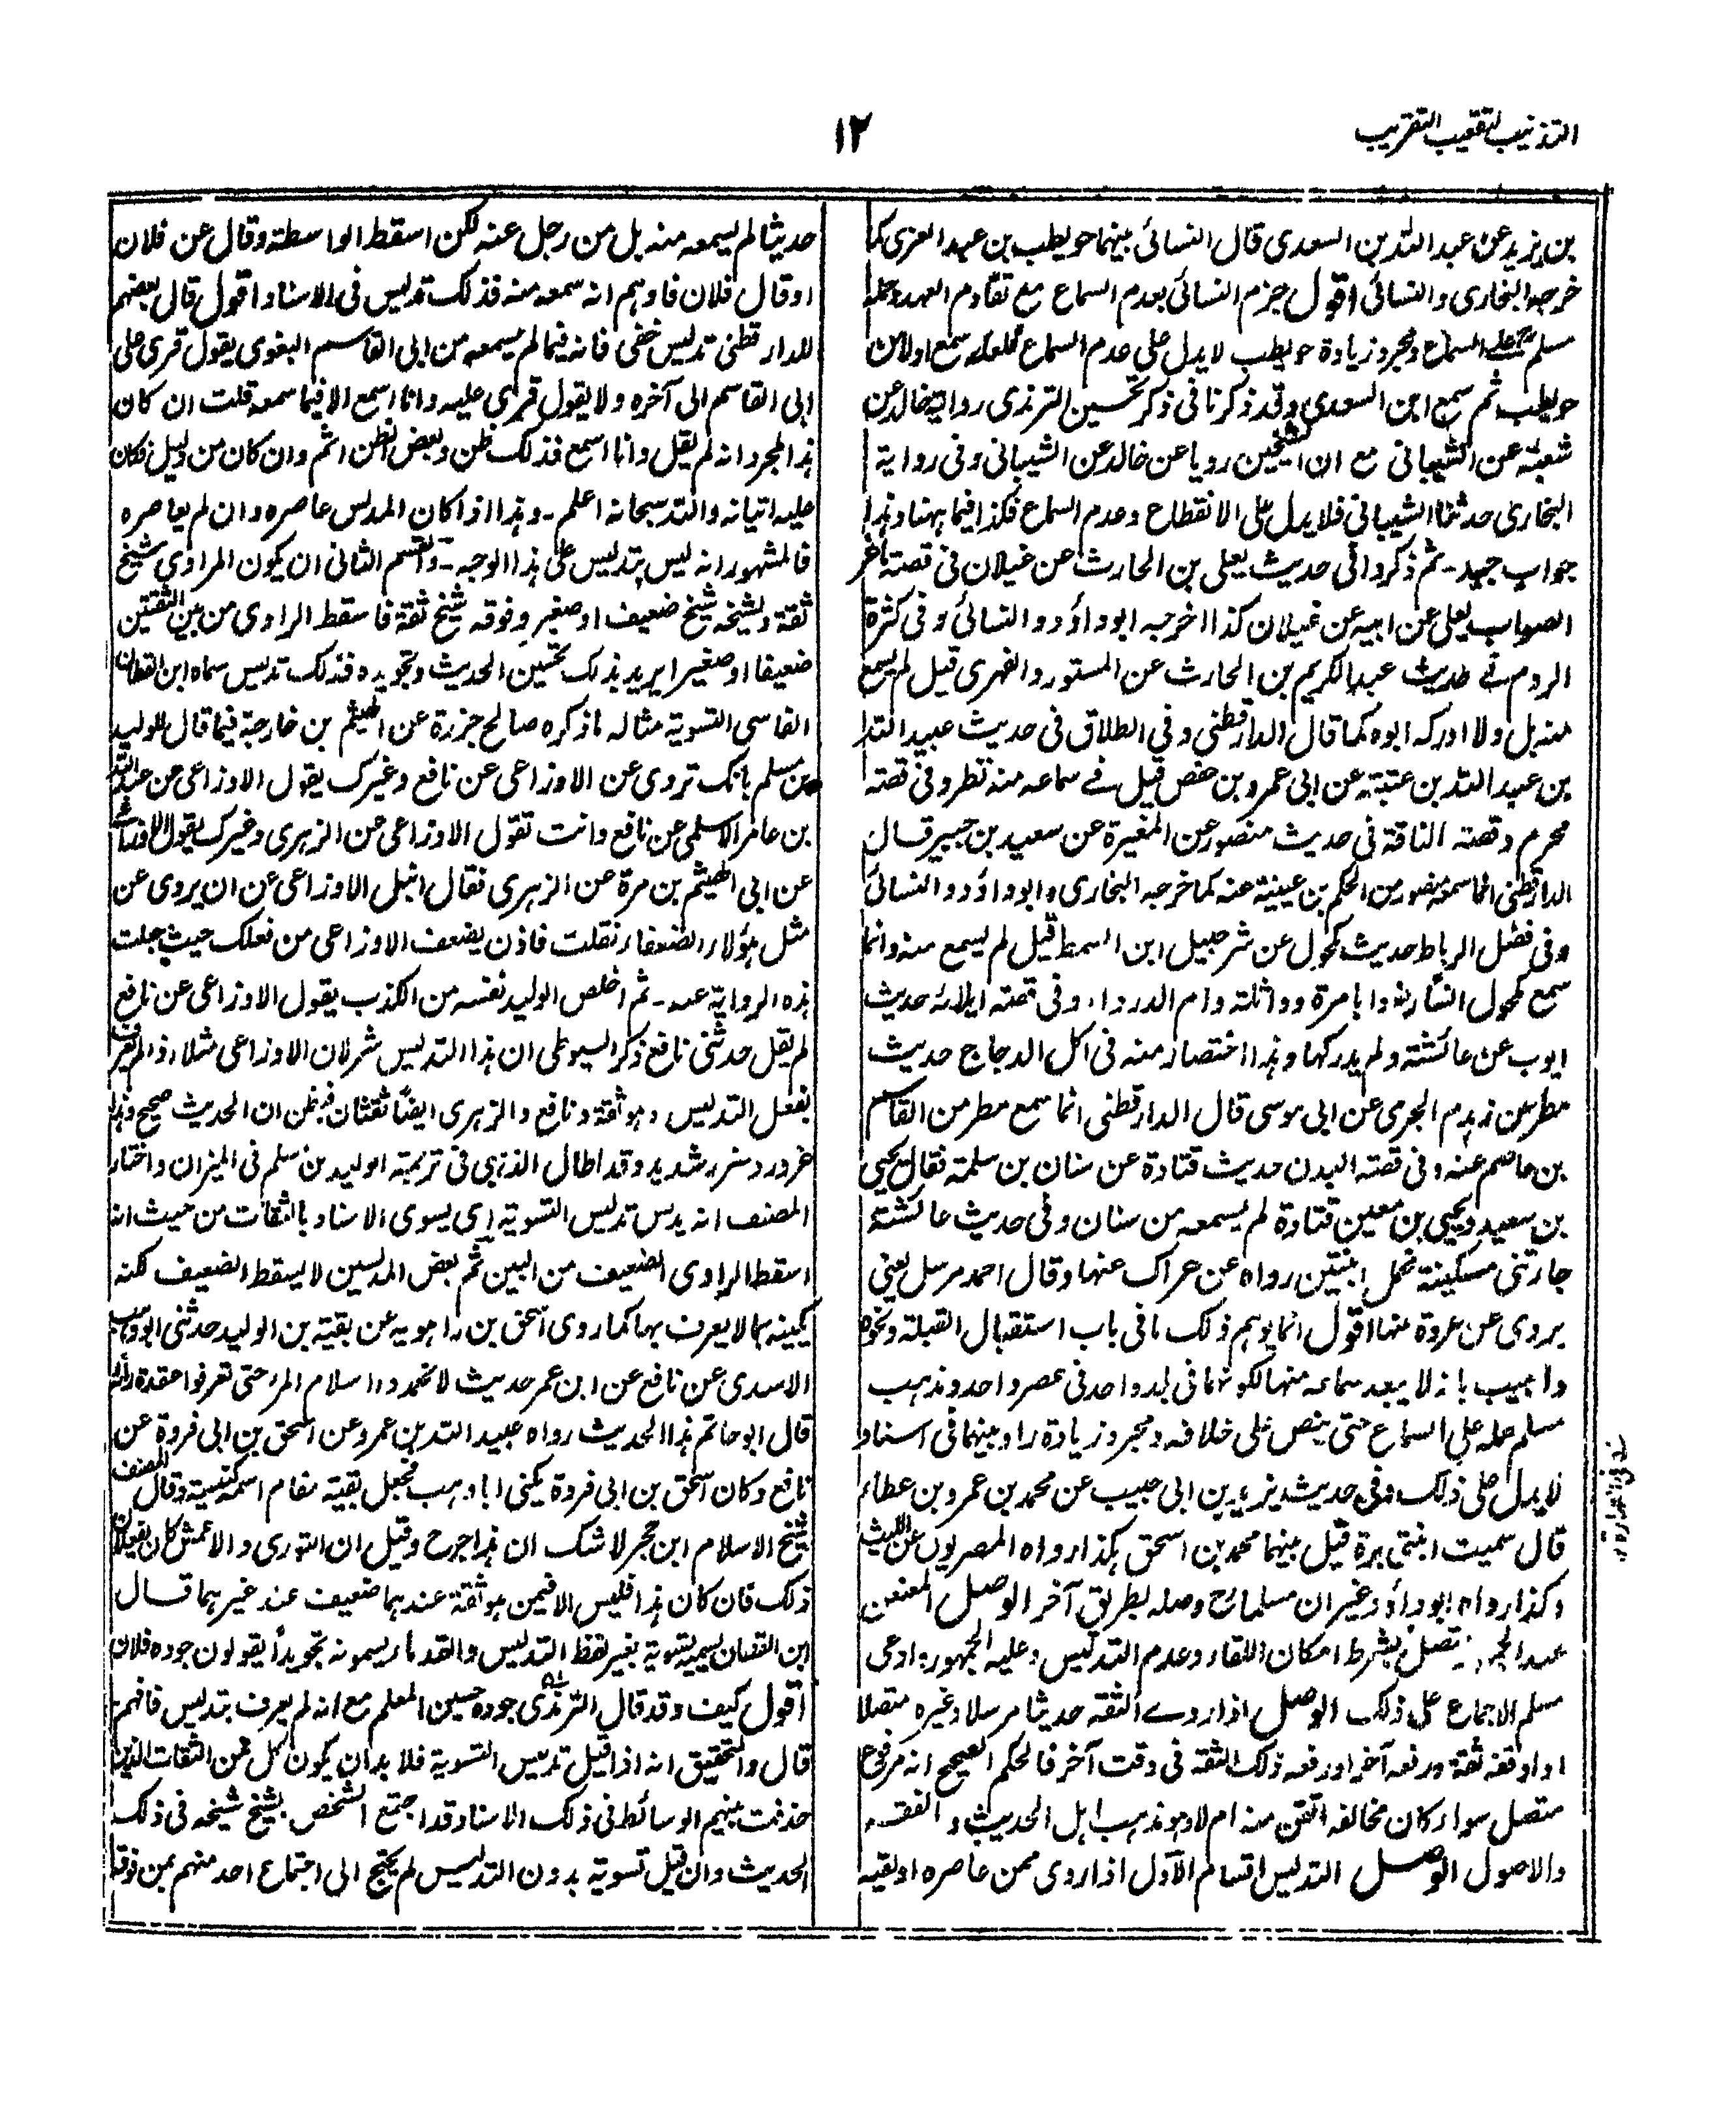 التذنيب لتعقيب التقريب
١٢
بن يزيد عن عبد الله بن السعدى قال النسائى بينهما حويطب بن عبد العزى كما
خرجه البخارى والنسائى اقول جزم النسائى بعدم السماع مع تقادم العهد وحمله
مسلم على السماع ومجرد زيادة حويطب لا يدل على عدم السماع فلعله سمع اولا من
حويطب ثم سمع ابن السعدى وقد ذكرنا فى ذكر تحسين الترمذى رواية خالد عن
شعبة عن الشيبانى مع ان الشيخين رويا عن خالد عن الشيبانى وفى رواية
البخارى حدثنا الشيبانى فلا يدل على الانقطاع وعدم السماع فكذا فيما ههنا وهذا
جواب جيد - ثم ذكروا فى حديث يعلى بن الحارث عن غيلان فى قصة ماعز
الصواب يعلى عن ابيه عن غيلان كذا اخرجه ابو داؤد والنسائى وفى كثرة
الروم فے حديث عبد الكريم بن الحارث عن المستورد الفهرى قيل لم يسمع
منه بل ولا ادركه ابوه كما قال الدارقطنى وفى الطلاق فى حديث عبيد الله
بن عبد الله بن عتبة عن ابى عمرو بن حفص قيل فے سماعه منه نظر وفى قصة
محرم وقصته الناقة فى حديث منصور عن المغيرة عن سعيد بن جبير قال
الدارقطنى انما سمعه منصور من الحكم بن عيينة عنه كما خرجه البخارى وابو داؤد والنسائى
وفى فضل الرباط حديث مكحول عن شرحبيل ابن السمط قيل لم يسمع منه وانما
سمع مكحول انسا وابا مرة وواثلة وام الدرداء وفى قصة ايلائه حديث
ايوب عن عائشة ولم يدركها وهذا اختصار منه فى اكل الدجاج حديث
مطر عن زهدم الجرمى عن ابى موسى قال الدارقطنى انما سمع مطر من القاسم
بن عاصم عنه وفى قصة البدن حديث قتادة عن سنان بن سلمة فقال يحيى
بن سعيد ويحيى بن معين قتادة لم يسمعه من سنان وفى حديث عائشة
جاءتنى مسكينة تحمل ابنتين رواه عن عراك عنها وقال احمد مرسل يعنى
يروى عن عروة عنها اقول انما يوهم ذلك ما فى باب استقبال القبلة ونحوه
واجيب بانه لا يبعد سماعه منها لكونهما فى بلد واحد فى عصر واحد ومذهب
مسلم حمله على السماع حتى ينص على خلافه ومجرد زيادة راو بينهما فى اسناد
لا يدل على ذلك وفى حديث يزيد بن ابى حبيب عن محمد بن عمرو بن عطاء
قال سميت ابنتى برة قيل بينهما محمد بن اسحق هكذا رواه المصريون عن الليث
وكذا رواه ابو داؤد غير ان مسلما وصله بطريق آخر الوصل المعنعن
عند متصل بشرط امكان اللقاء وعدم التدليس وعليه الجمهور ادعى
مسلم الاجماع على ذلك الوصل اذا روے الثقه حديثا مرسلا وغيره متصلا
او اوقفه ثقة ورفعه آخر او رفعه ذلك الثقه فى وقت آخر فالحكم الصحيح انه مرفوع
متصل سواء كان مخالفه اتقن منه ام لا وهو مذهب اهل الحديث والفقه
والاصول الوصل التدليس اقسام الاول اذا روى ممن عاصره او لقيه
حديثا لم يسمعه منه بل من رجل عنه لكن اسقط الواسطة وقال عن فلان
او قال فلان فاوهم انه سمعه منه فذلك تدليس فى الاسناد اقول قال بعضهم
للدارقطنى تدليس خفى فانه فيما لم يسمعه من ابى القاسم البغوى يقول قرى على
ابى القاسم الى آخره ولا يقول قرى عليه وانا اسمع الا فيما سمعه قلت ان كان
هذا لمجرد انه لم يقل وانا اسمع فذلك ظن وبعض الظن اثم وان كان من دليل فكان
عليه اتيانه والله سبحانه اعلم - وهذا اذا كان المدلس عاصره وان لم يعاصره
فالمشهور انه ليس بتدليس على هذا الوجه - والقسم الثانى ان يكون الراوى شيخ
ثقة وشيخه شيخ ضعيف او صغير وفوقه شيخ ثقة فاسقط الراوى من بين الثقتين
ضعيفا او صغيرا يريد بذلك تحسين الحديث وتجويده فذلك تدليس سماه ابن القطان
الفاسى التسوية مثاله ما ذكره صالح جزرة عن الهيثم بن خارجة فيما قال للوليد
بن مسلم بانك تروى عن الاوزاعى عن نافع وغيرك يقول الاوزاعى عن عبد الله
بن عامر الاسلمى عن نافع وانت تقول الاوزاعى عن الزهرى وغيرك يقول الاوزاعى
عن ابى الهيثم بن مرة عن الزهرى فقال انبل الاوزاعى عن ان يروى عن
مثل هؤلاء الضعفاء فقلت فاذن يضعف الاوزاعى من فعلك حيث جعلت
هذه الرواية عنه - ثم اخلص الوليد نفسه من الكذب يقول الاوزاعى عن نافع
لم يقل حدثنى نافع ذكر السيوطى ان هذا التدليس شر لان الاوزاعى مثلا اذ لم يعرف
بفعل التدليس وهو ثقة ونافع والزهرى ايضا ثقتان فيظن ان الحديث صحيح وهذا
غرور وضرر شديد وقد اطال الذهبى فى ترجمة الوليد بن مسلم فى الميزان واختار
المصنف انه يدلس تدليس التسوية اى يسوى الاسناد بالثقات من حيث انه
اسقط الراوى الضعيف من البين ثم بعض المدلسين لا يسقط الضعيف لكنه
يكنيه بما لا يعرف بها كما روى اسحق بن راهويه عن بقية بن الوليد حدثنى ابو وهب
الاسدى عن نافع عن ابن عمر حديث لا تحمدوا اسلام المرء حتى تعرفوا عقدة رأيه
قال ابو حاتم هذا الحديث رواه عبيد الله بن عمرو عن اسحق بن ابى فروة عن
نافع وكان اسحق بن ابى فروة يكنى ابا وهب فجعل بقية مقام اسمه كنيته وقال المصنف
شيخ الاسلام ابن حجر لا شك ان هذا جرح وقيل ان الثورى والاعمش كان يفعلان
ذلك فان كان هذا فليس الا فيمن هو ثقة عندهما ضعيف عند غيرهما قال
ابن القطان يسميه تسوية بغير لفظ التدليس والقدماء يسمونه تجويداً يقولون جوده فلان
اقول كيف وقد قال الترمذى جوده حسين المعلم مع انه لم يعرف بتدليس فافهم
قال والتحقيق انه اذا قيل تدليس التسوية فلا بد ان يكون كل من الثقات الذين
حذفت بينهم الوسائط فى ذلك الاسناد قد اجتمع الشخص بشيخ شيخه فى ذلك
الحديث وان قيل تسوية بدون التدليس لم يحتج الى اجتماع احد منهم بمن فوقه